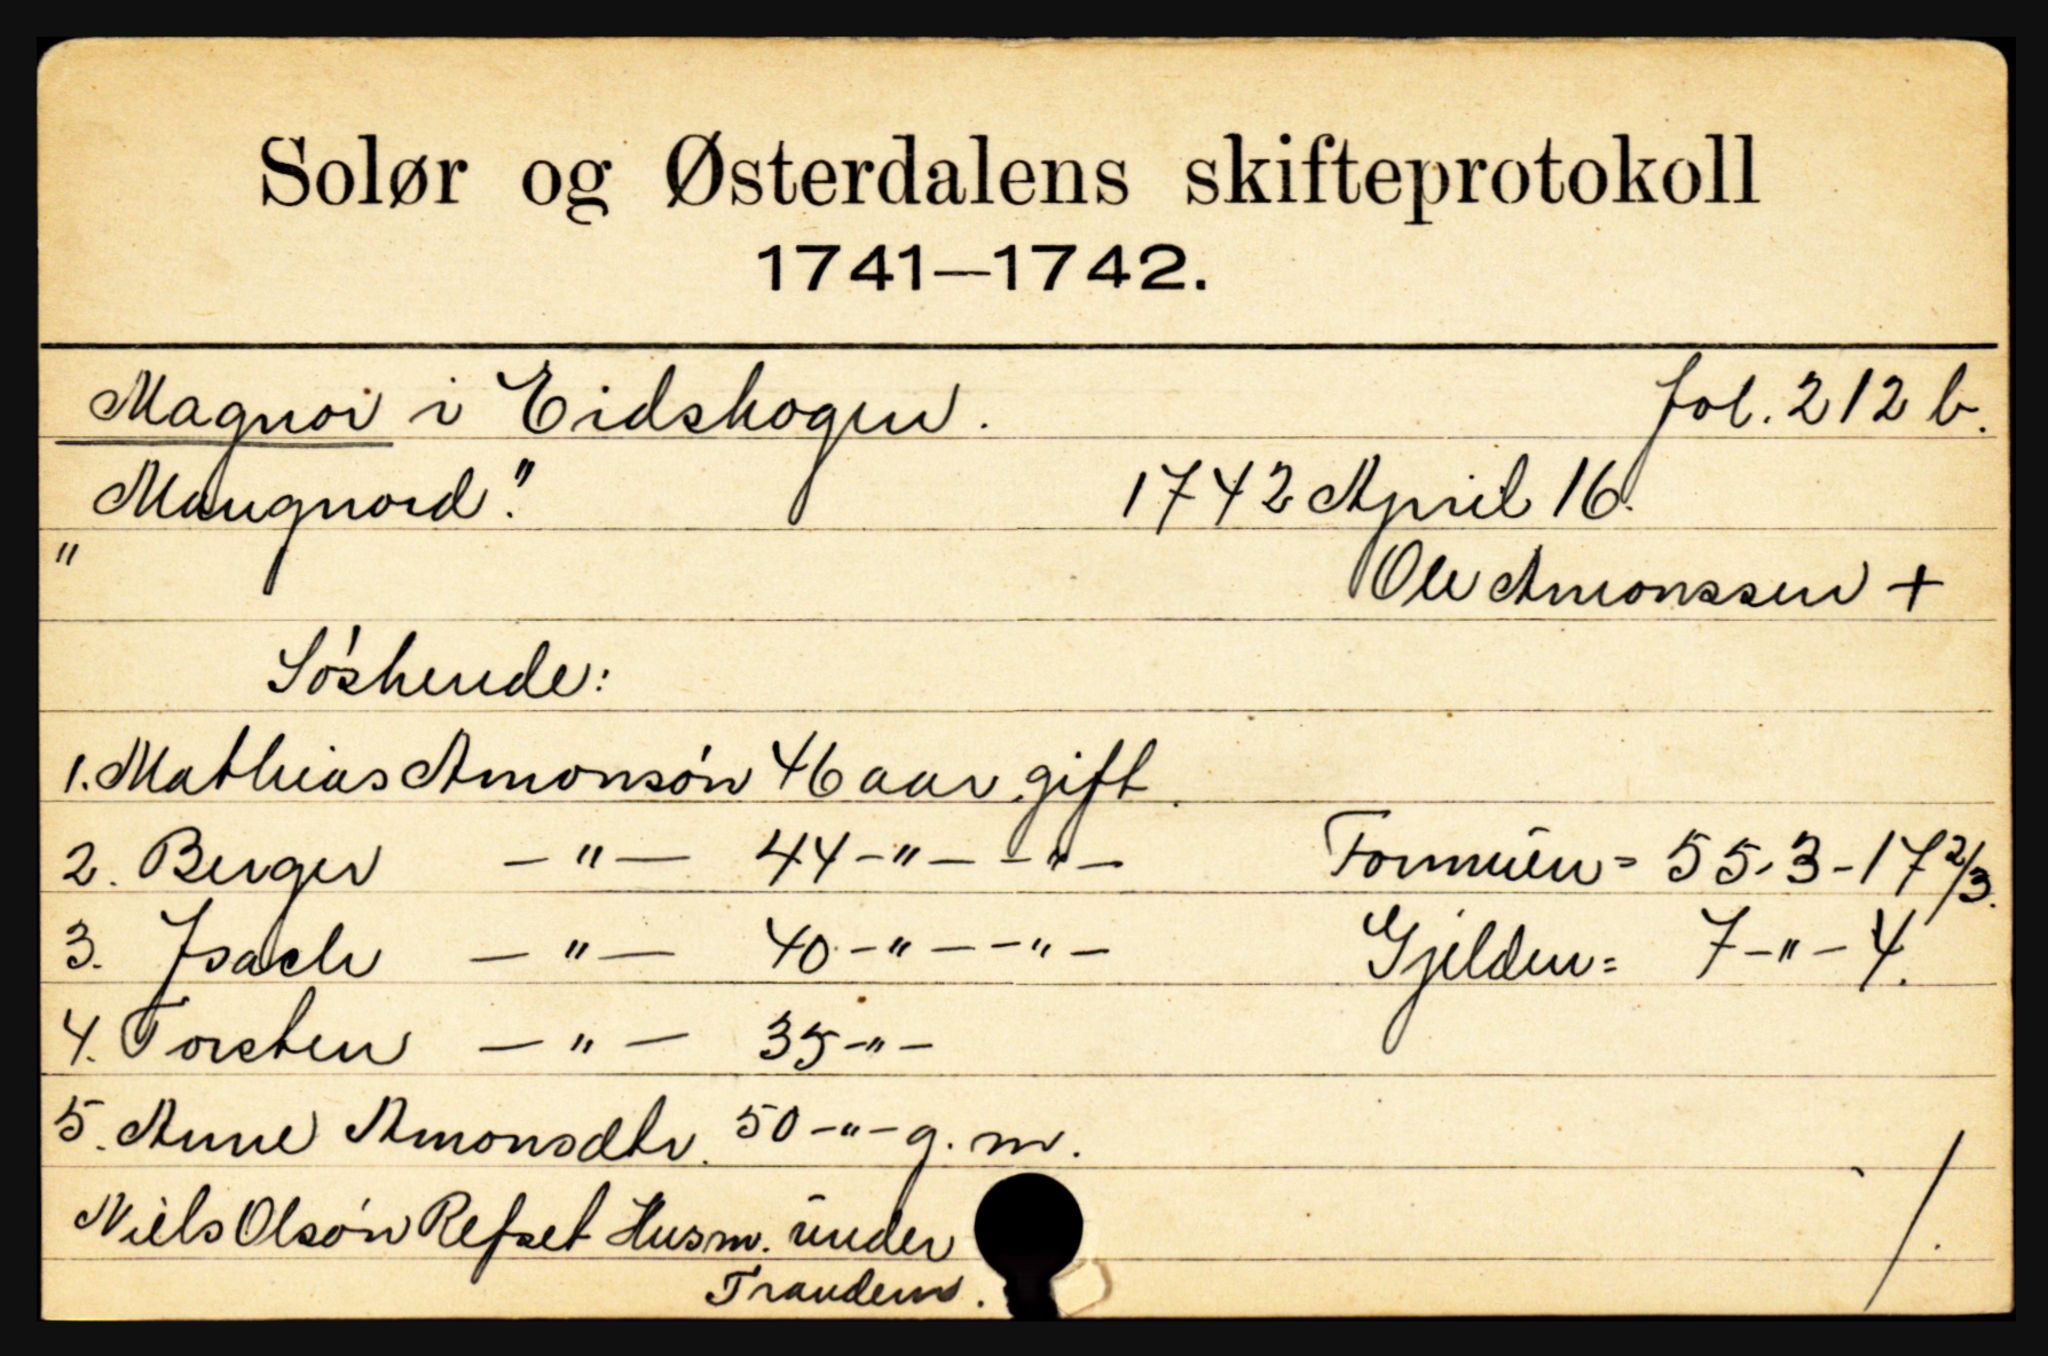 Solør og Østerdalens skifteprotokoll
1741—1742.
Magnor i Eidskogen. fol. 212 b.
"Maugnord." 1742 April 16.
" Ole Amonssen +
Søskende:
1. Mathias Amonsøn 46 aar gift.
2. Berger — " — 44 - " - - " - Formuen = 55-3-17 2/3.
3. Isach — " — 40 - " - - " - Gjelden = 7 - " - 4.
4. Torsten — " — 35 - " -
5. Anne Amonsdtr. 50 - " - g. m.
Niels Olsøn Refset Husm. under
Trandem. /.